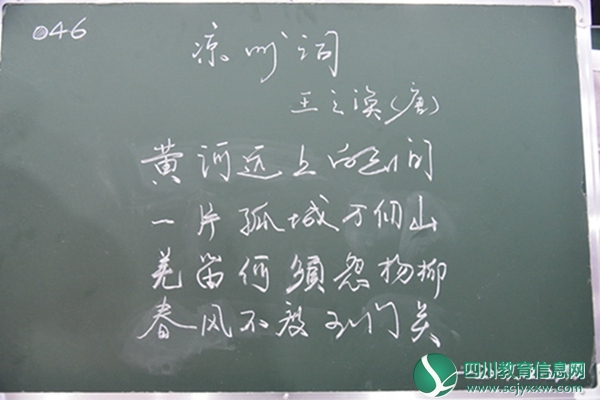 046
凉州词
王之涣(唐)
黄河远上白云间
一片孤城万仞山
羌笛何須怨杨柳
春风不度玉门关
四川教育信息网
www.scjyxxw.com